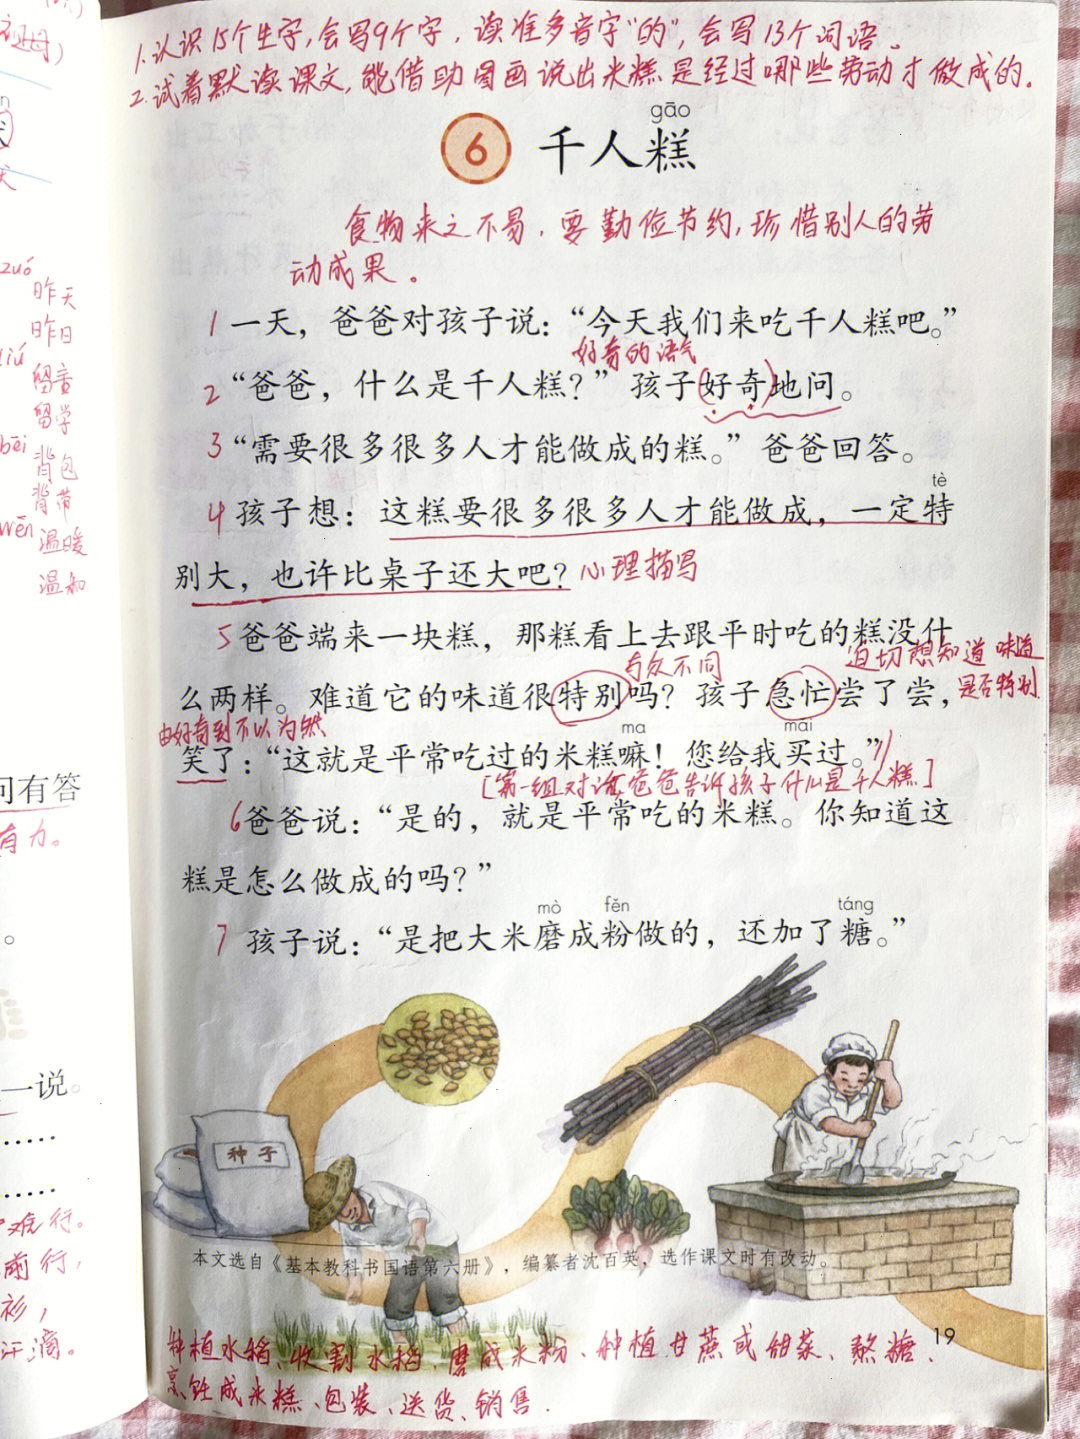 1.认识15个生字,会写9个字,读准多音字"的",会写13个词语。
2.试着默读课文,能借助图画说出米糕是经过哪些劳动才做成的.
gāo
6 千人糕
食物来之不易,要勤俭节约,珍惜别人的劳
动成果。
1 一天，爸爸对孩子说：“今天我们来吃千人糕吧。”
好奇的语气
2 “爸爸，什么是千人糕？”孩子(好奇)地问。
3 “需要很多很多人才能做成的糕。”爸爸回答。
tè
4 孩子想：这糕要很多很多人才能做成，一定特
别大，也许比桌子还大吧？心理描写
5 爸爸端来一块糕，那糕看上去跟平时吃的糕没什
与众不同 迫切想知道味道
么两样。难道它的味道很特别吗？孩子急忙尝了尝，是否特别
由好奇到不以为然
ma mǎi
笑了：“这就是平常吃过的米糕嘛！您给我买过。”//
[第一组对话,爸爸告诉孩子什么是千人糕]
6 爸爸说：“是的，就是平常吃的米糕。你知道这
糕是怎么做成的吗？”
mò fěn táng
7 孩子说：“是把大米磨成粉做的，还加了糖。”
种子
本文选自《基本教科书国语第六册》，编纂者沈百英，选作课文时有改动。
19
种植水稻、收割水稻、磨成米粉、种植甘蔗或甜菜、熬糖、
烹饪成米糕、包装、送货、销售.
zuó
昨天
昨日
liú
留意
留学
bēi
背包
背带
wēn
温暖
温和
问有答
有力。
。
一说。
……
……
难行。
前行,
衫,
汗滴。